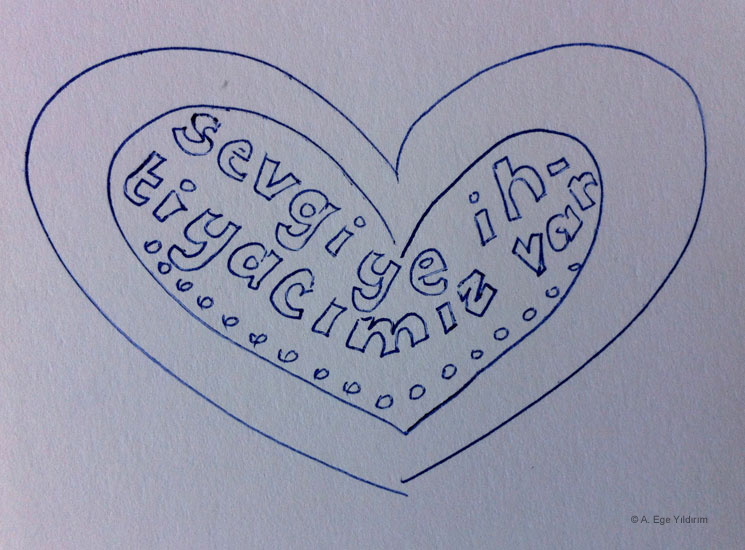 sevgiye ih-
tiyacımız var
© A. Ege Yıldırım